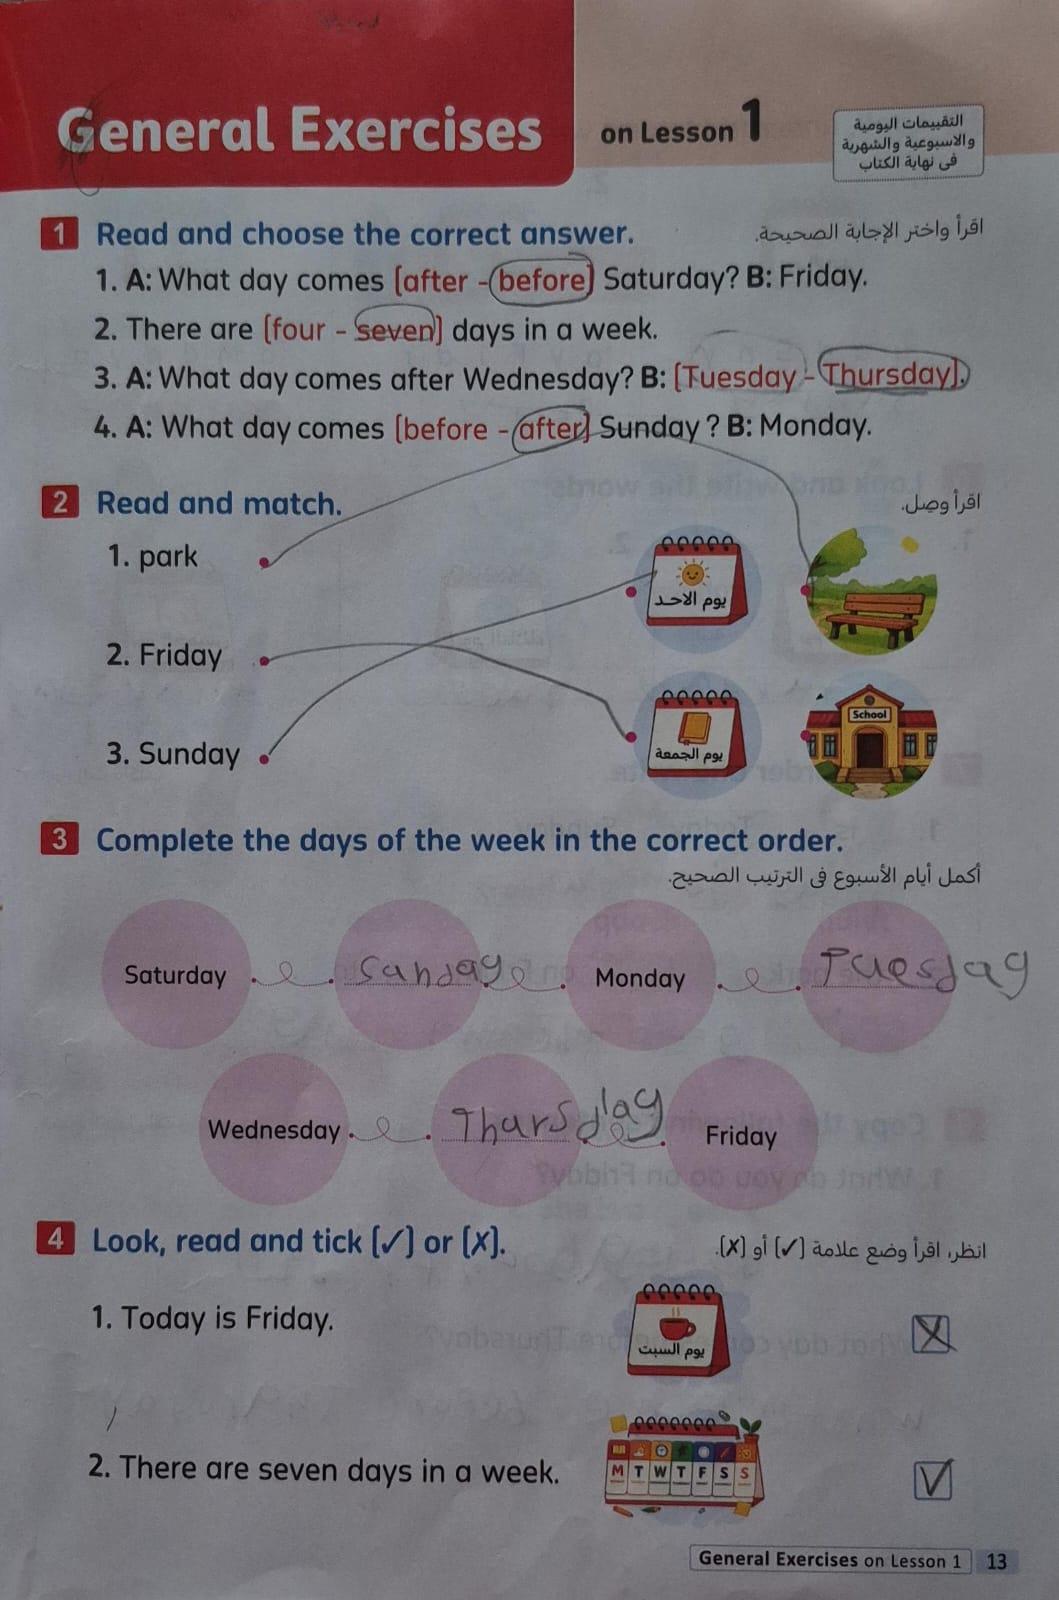 General Exercises on Lesson 1
التقييمات اليومية
والاسبوعية والشهرية
فى نهاية الكتاب
1 Read and choose the correct answer. اقرأ واختر الإجابة الصحيحة.
1. A: What day comes (after - before) Saturday? B: Friday.
2. There are (four - seven) days in a week.
3. A: What day comes after Wednesday? B: (Tuesday - Thursday).
4. A: What day comes (before - after) Sunday ? B: Monday.
2 Read and match. اقرأ وصل.
1. park
يوم الاحد
2. Friday
School
يوم الجمعة
3. Sunday
3 Complete the days of the week in the correct order.
أكمل أيام الأسبوع فى الترتيب الصحيح.
Saturday Sunday Monday Tuesday
Wednesday Thursday Friday
4 Look, read and tick (✓) or (X). انظر، اقرأ وضع علامة (✓) أو (X).
1. Today is Friday. يوم السبت X
2. There are seven days in a week. M T W T F S S ✓
General Exercises on Lesson 1 13